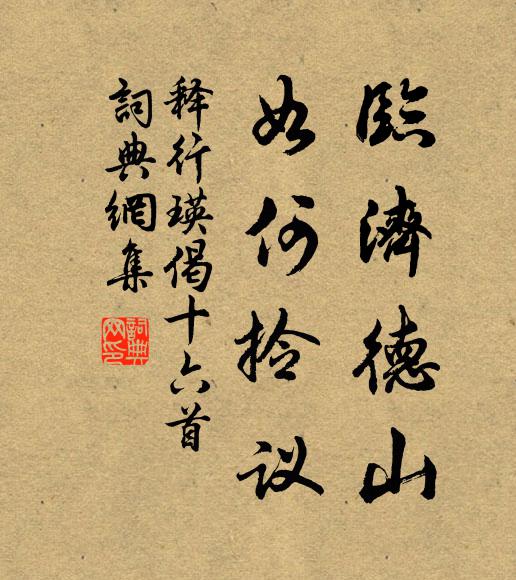 臨濟德山
如何捡议
释行瑛偈十六首
詞典網集
詞典
网印